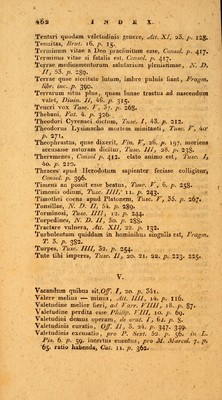 462 INDEX.
Tentari quodam valetudinis genere, Att. XI, 23. p. 128.
Tenuitas, Brut. 16. p. 15.
Terminum vitae a Deo praefinitum esse, Consol. p. 417.
Terminus vitae si fatalis est, Consol. p. 417.
Terrae medicamentorum salutarium plenissimae, N. D. II, 53. p. 289.
Terrae quae siccitate lutum, imbre pulvis fiunt, Fragm. lib. inc. p. 390.
Terrarum situs plus, quam lunae tractus ad nascendum valet, Divin. II, 46. p. 315.
Teucri vox Tusc. V, 37. p. 268.
Thebani, Fat. 4. p. 326.
Theodori Cyrenaei dictum, Tusc. I, 43. p. 212.
Theodorus Lysimacho mortem minitanti, Tusc. V, 40. p. 271.
Theophrastus, quae dixerit, Fin. V, 26. p. 197. moriens accusasse naturam dicitur, Tusc. III, 28. p. 238.
Theramenes, Consol. p. 412. elato animo est, Tusc. I, 40. p. 210.
Thraces apud Herodotum sapienter fecisse colligitur, Consol. p. 396.
Timens an possit esse beatus, Tusc. V, 6. p. 258.
Timonis odium, Tusc. IIII, 11. p. 243.
Timothei coena apud Platonem, Tusc. V, 35. p. 267.
Tonsillae, N. D. II, 54. p. 289.
Torminosi, Tusc. IIII, 12. p. 244.
Torpedines, N. D. II, 50. p. 288.
Tractare vulnera, Att. XII, 22. p. 132.
Turbulentum quiddam in hominibus singulis est, Fragm. T. 3. p. 382.
Turpes, Tusc. IIII, 32. p. 254.
Tute tibi impera, Tusc. II, 20. 21. 22. p. 223. 225.
V.
Vacandum quibus sit, Off. I, 20. p. 341.
Valere melius — minus, Att. IIII, 14. p. 116.
Valetudine melior fieri, ad Varr. VIIII, 18. p. 87.
Valetudine perdita esse Philip. VIII, 10. p. 69.
Valetudini demus operam, de orat. I, 61. p. 8.
Valetudinis curatio, Off. II, 3. 24. p. 347. 349.
Valetudinis excusatio, pro P. Sext. 52. p. 56. in L. Pis. 6. p. 59. incertus eventus, pro M. Marcel. 7. p. 65. ratio habenda, Cat. 11. p. 362.